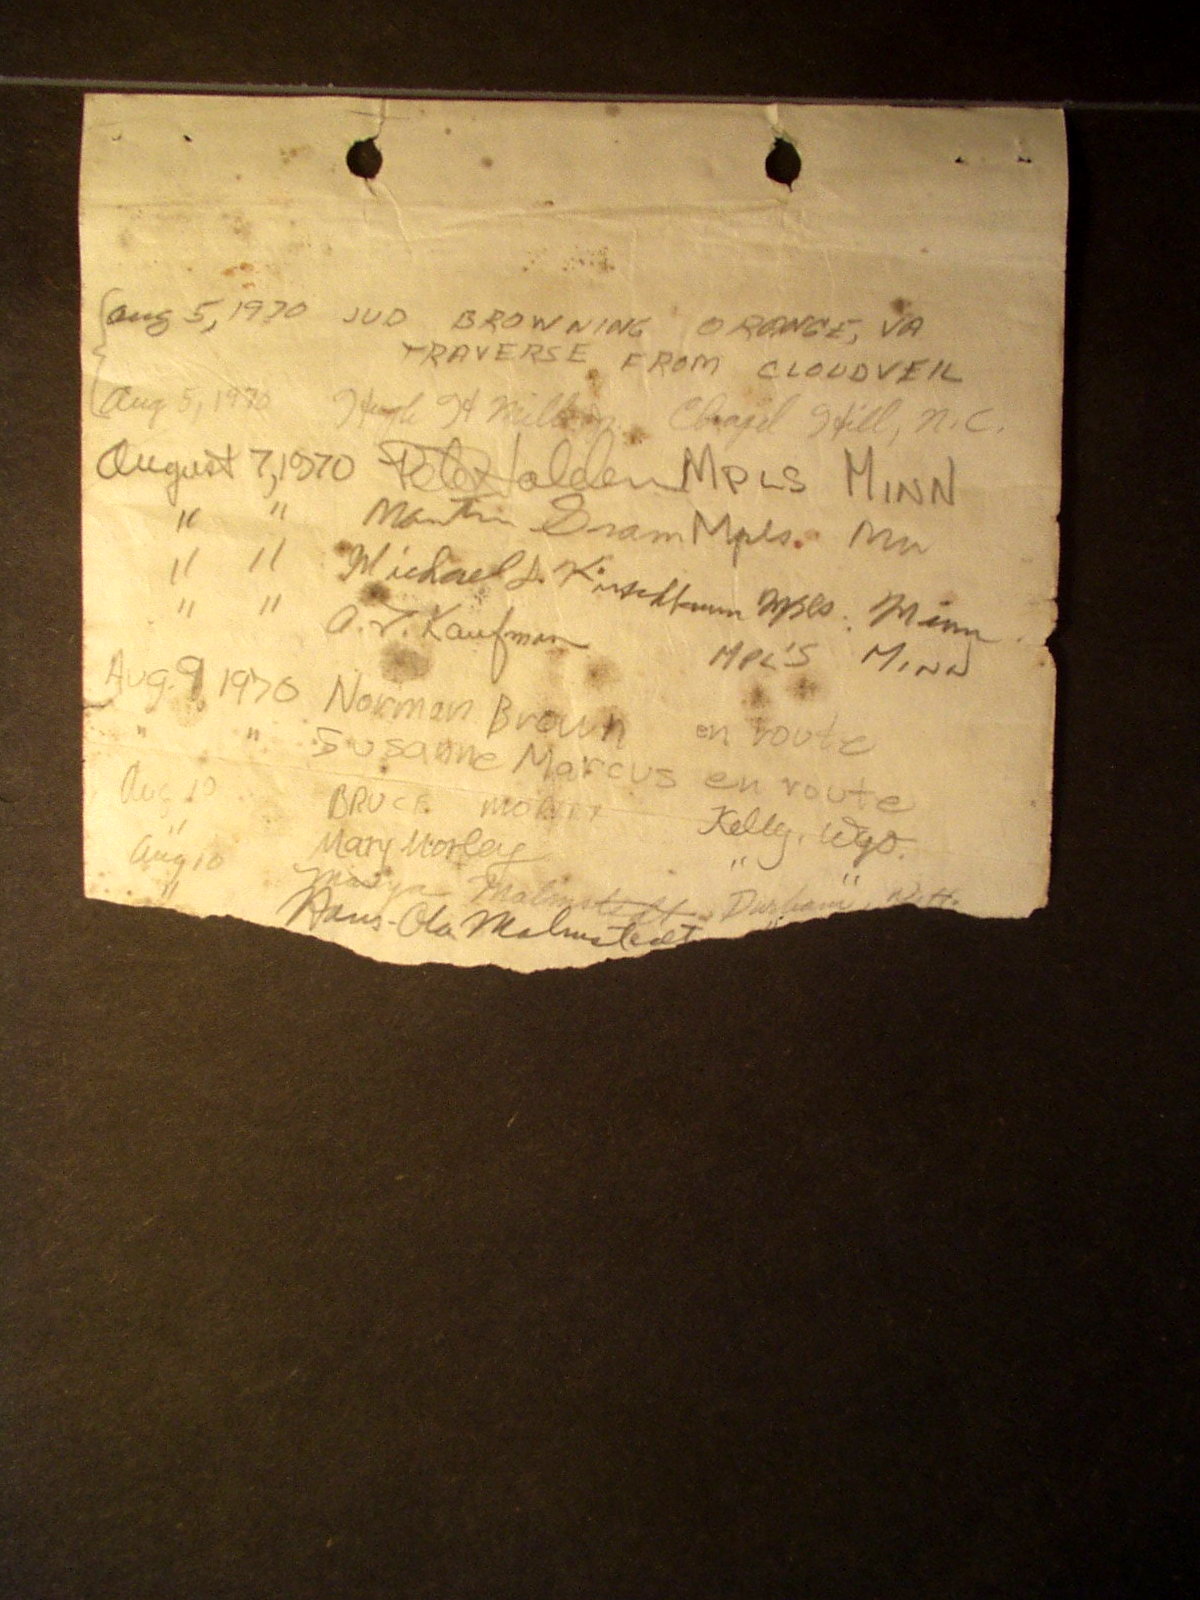 Aug 5, 1970 JUD BROWNING ORANGE, VA
TRAVERSE FROM CLOUDVEIL
Aug 5, 1970 Hugh H Chapel Hill, N.C.
August 7, 1970 Pete Holden MPLS MINN
" " Martin Gram Mpls. Mn
" " Michael J. Kirschbaum Mpls. Minn
" " A.T. Kaufman MPL'S MINN
Aug. 9, 1970 Norman Brown en route
" " Susanne Marcus en route
Aug 10 BRUCE Kelly, Wyo.
" Mary Morley " "
Aug 10 Malmstedt Durham, N.H.
" Hans-Ola Malmstedt "